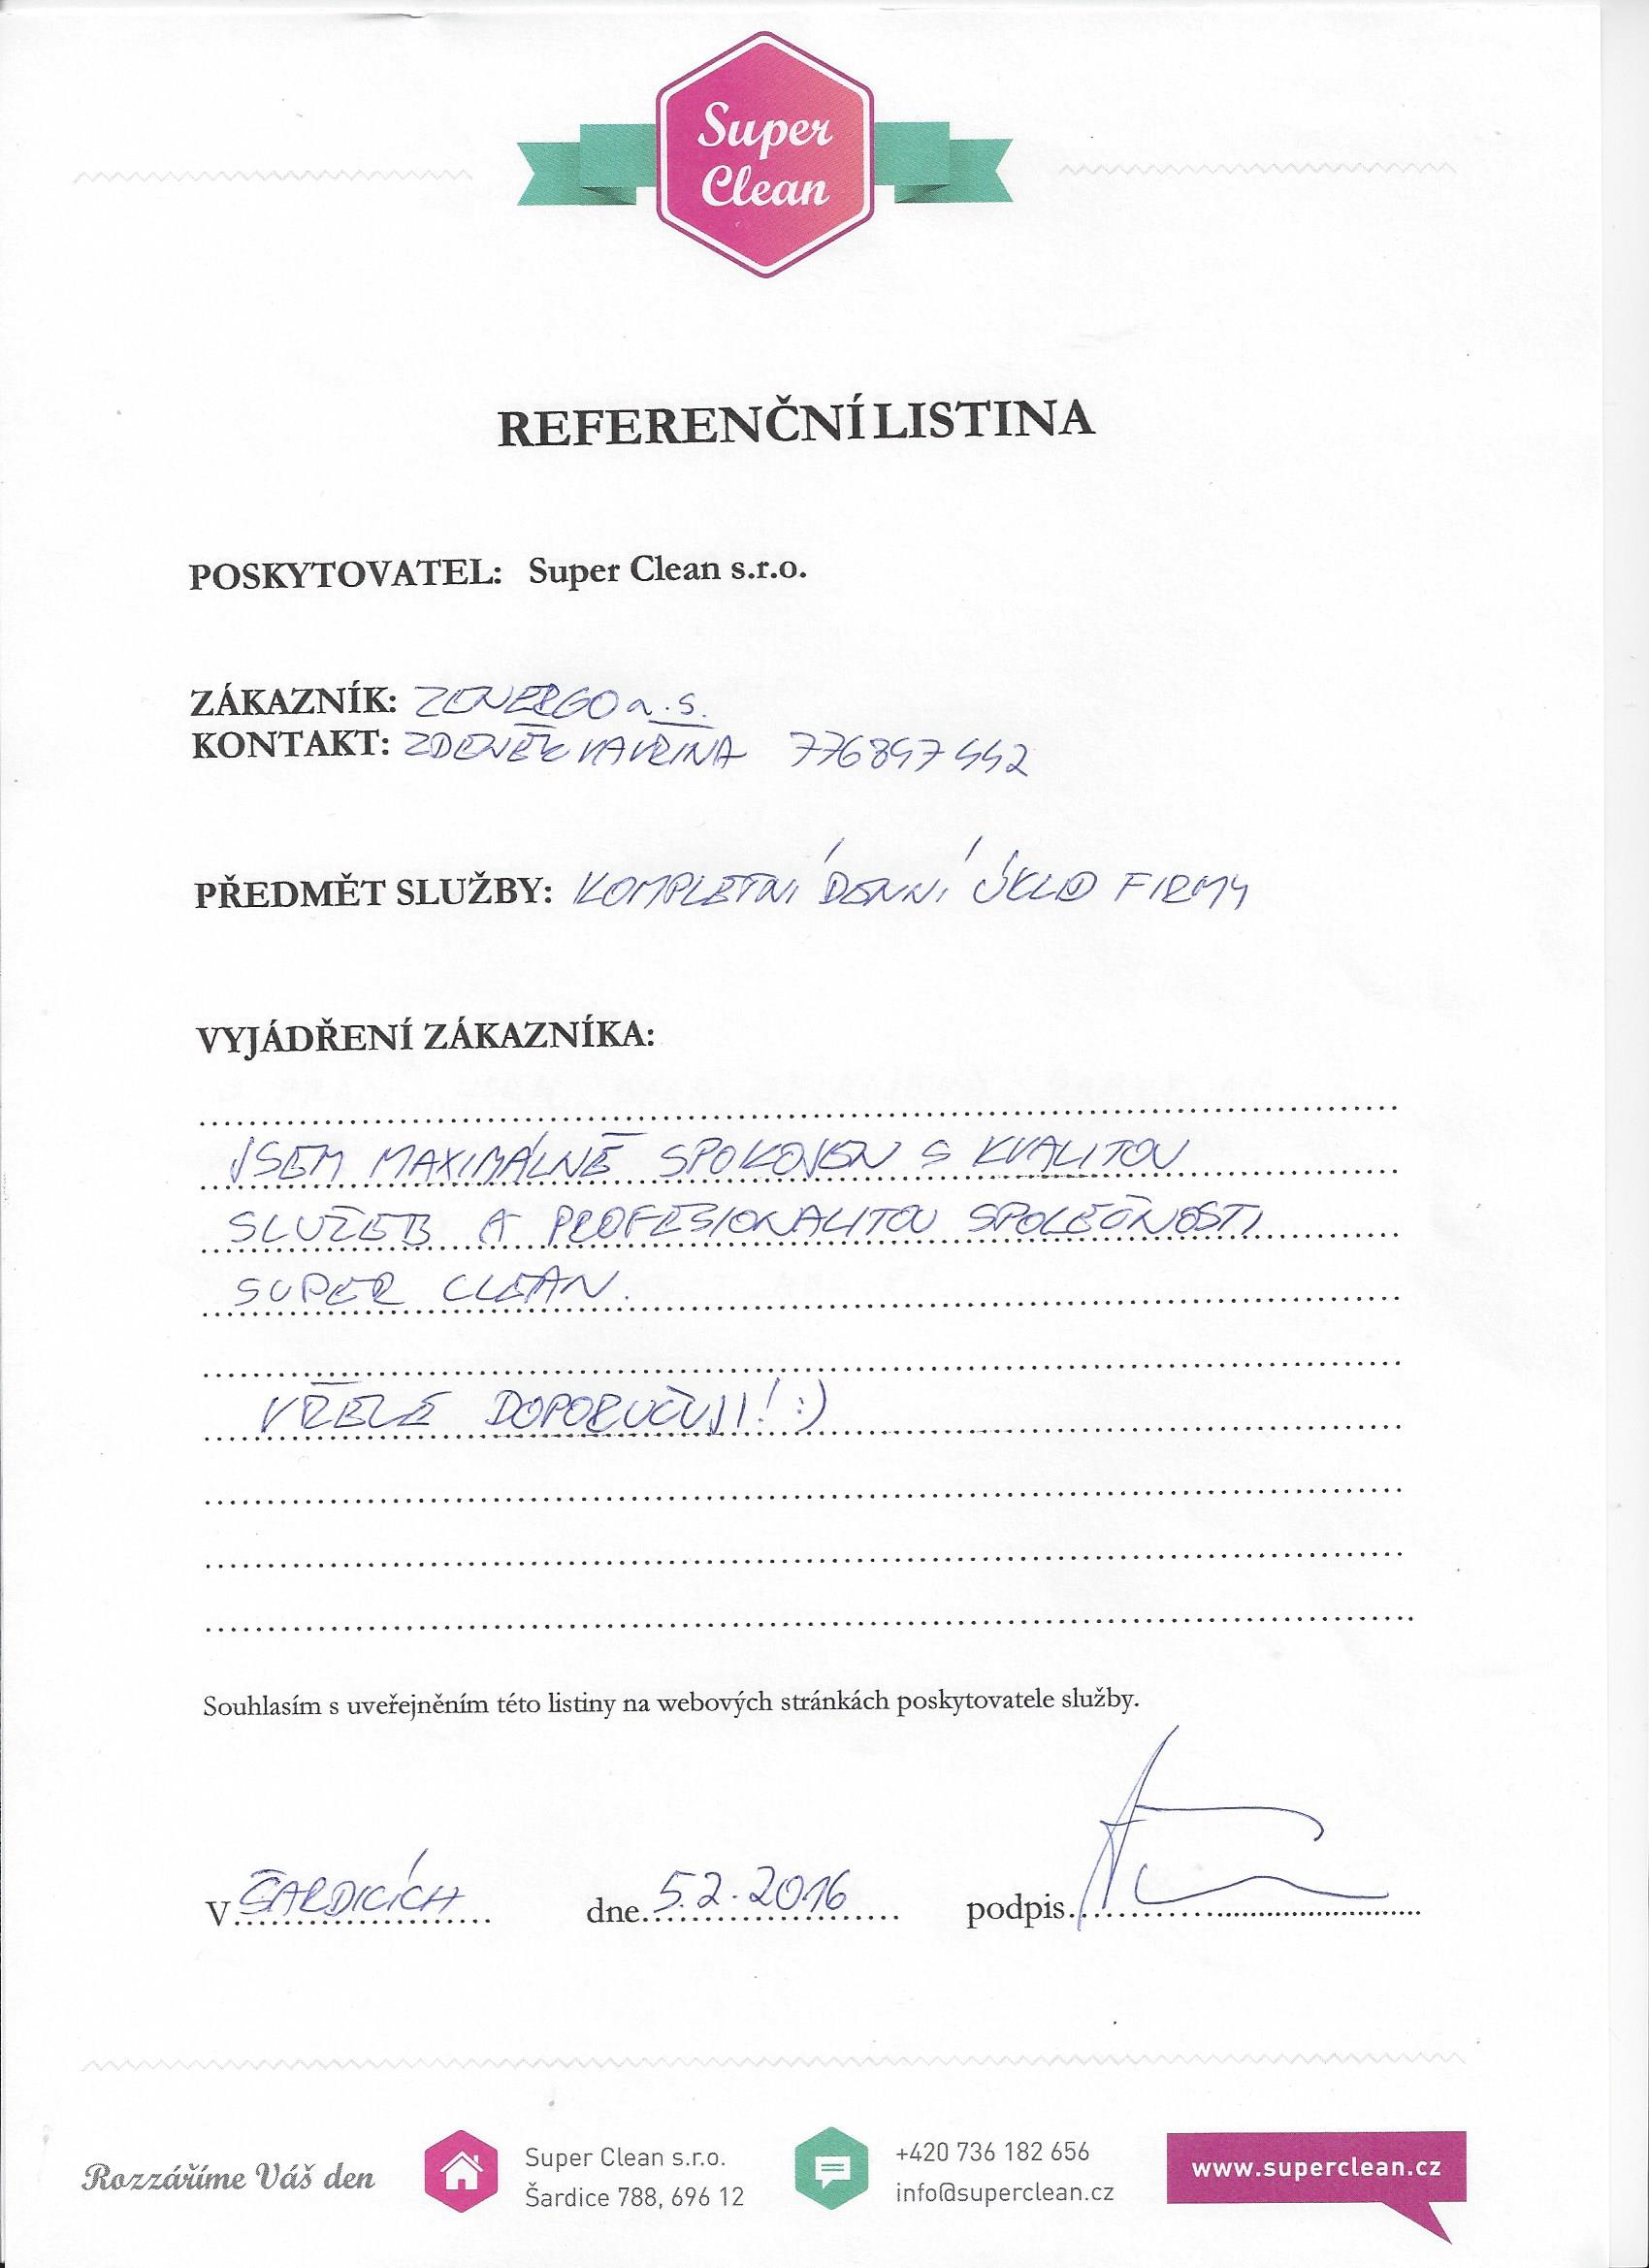 Super
Clean
REFERENČNÍ LISTINA
POSKYTOVATEL: Super Clean s.r.o.
ZÁKAZNÍK: ZENERGO a.s.
KONTAKT: ZDENĚK VAVŘINA
PŘEDMĚT SLUŽBY: KOMPLETNÍ DENNÍ ÚKLID FIRMY
VYJÁDŘENÍ ZÁKAZNÍKA:
JSEM MAXIMÁLNĚ SPOKOJEN S KVALITOU
SLUŽEB A PROFESIONALITOU SPOLEČNOSTI
SUPER CLEAN.
VŘELE DOPORUČUJI! :)
Souhlasím s uveřejněním této listiny na webových stránkách poskytovatele služby.
V ŠARDICÍCH dne 5.2.2016 podpis
Rozzáříme Váš den
Super Clean s.r.o.
Šardice 788, 696 12
+420 736 182 656
info@superclean.cz
www.superclean.cz